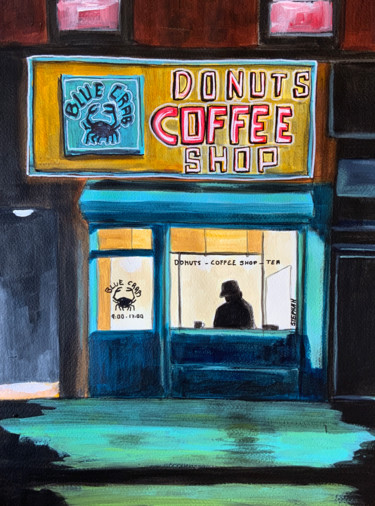 BLUE CRAB
DONUTS
COFFEE
SHOP
DONUTS - COFFEE SHOP - TEA
BLUE CRAB
9:00 - 17:00